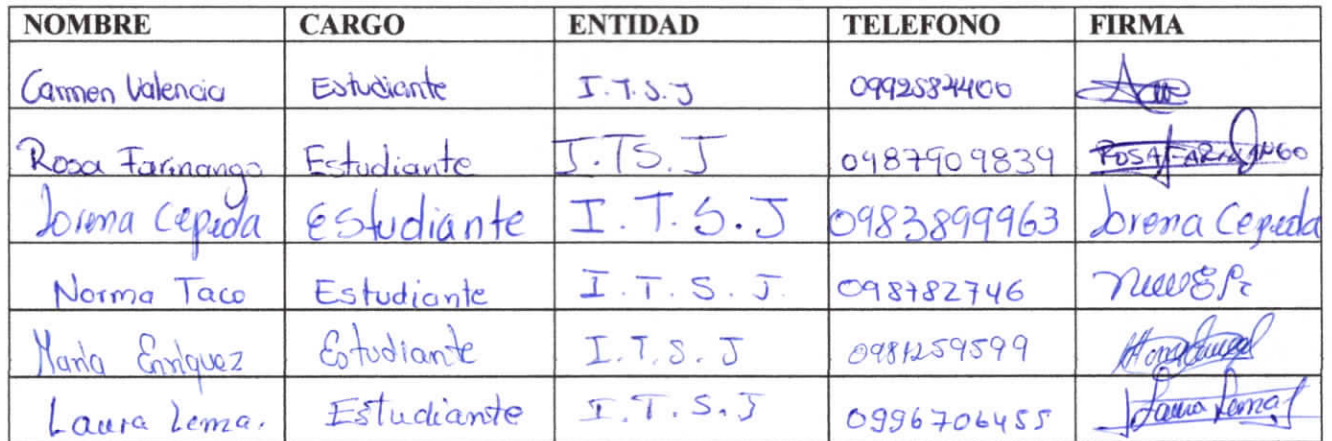 NOMBRE CARGO ENTIDAD TELEFONO FIRMA
Carmen Valencia Estudiante I.T.S.J 0992584400
Rosa Farinango Estudiante I.TS.J 0987909839 ROSA FARINANGO
Lorena Cepeda Estudiante I.T.S.J 0983899963 Lorena Cepeda
Norma Taco Estudiante I.T.S.J. 098782746
Maria Enriquez Estudiante I.T.S.J
Laura Lema. Estudiante I.T.S.J 0996706455 Laura Lema